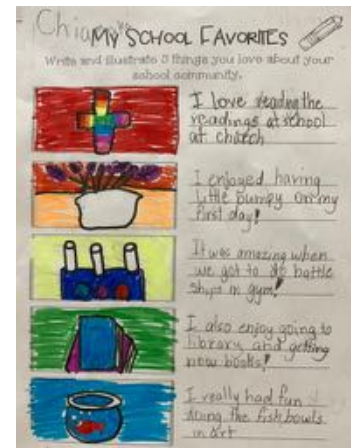 MY SCHOOL FAVORITES
Write and illustrate 5 things you love about your
school community.
I love reading the
readings at school
at church
I enjoyed having
little bumpy on my
first day!
It was amazing when
we got to do battle
ships in gym!
I also enjoy going to
library and getting
new books!
I really had fun
doing the fishbowls
in art